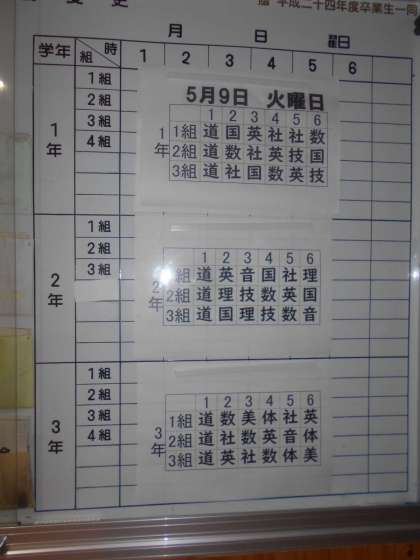 変 更
贈 平成二十四年度卒業生一同
月 日 曜日
学年 組 時 1 2 3 4 5 6
1年
1組
2組
3組
4組
5月9日 火曜日
1 2 3 4 5 6
1年
1組 道 国 英 社 社 数
2組 道 数 社 英 技 国
3組 道 社 国 数 英 技
2年
1組
2組
3組
1 2 3 4 5 6
2年
1組 道 英 音 国 社 理
2組 道 理 技 数 英 国
3組 道 国 理 技 数 音
3年
1組
2組
3組
4組
1 2 3 4 5 6
3年
1組 道 数 美 体 社 英
2組 道 社 数 英 音 体
3組 道 英 社 数 体 美